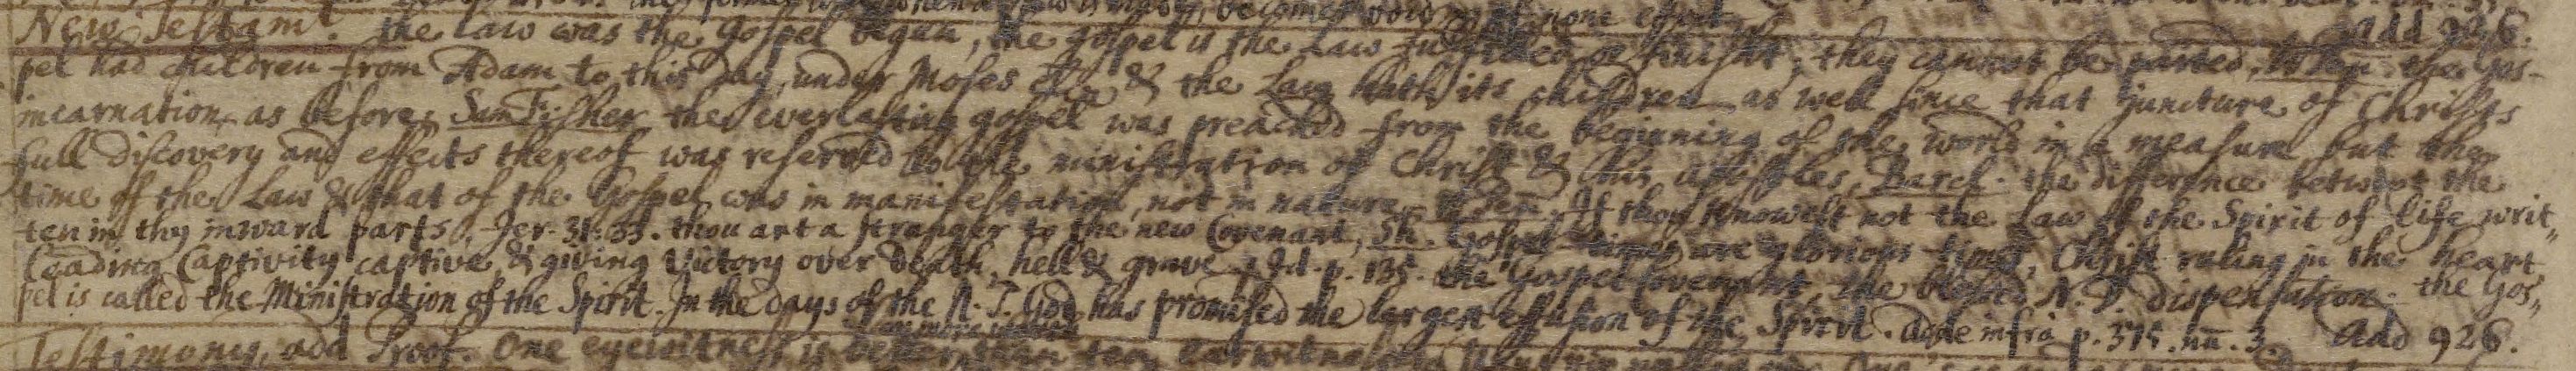 becomes void & of none effect
add 926.
New Testamt. the Law was the Gospel begun, the gospel is the Law fulfilled or finisht; they cannot be parted, W. Pen. the Gos-
pel had children from Adam to this day, under Moses &c. & the Law hath its children as well since that juncture of Christs
incarnation as before. Sam Fisher the everlasting gospel was preached from the beginning of the world in a measure but the
full discovery and effects thereof was reserved to the ministration of Christ & his apostles, Barcl. the difference betwixt the
time of the Law & that of the Gospel was in manifestation, not in nature. W Pen. If thou knowest not the Law of the Spirit of life writ„
ten in thy inward parts, Jer. 31.33. thou art a stranger to the new Covenant, Sh. Gospel times are glorious times, Christ ruling in the heart
Leading Captivity captive, & giving Victory over death, hell & grave, Id. p. 135. the Gospel Covenant the blessed N. T. dispensation. the Gos„
pel is called the Ministration of the Spirit. In the days of the N. T. God has promised the largest effusion of the Spirit. adde infra p. 375. nū. 3. Add 926.
Testimony, add Proof. One eyewitness is better than ten earwitnesses